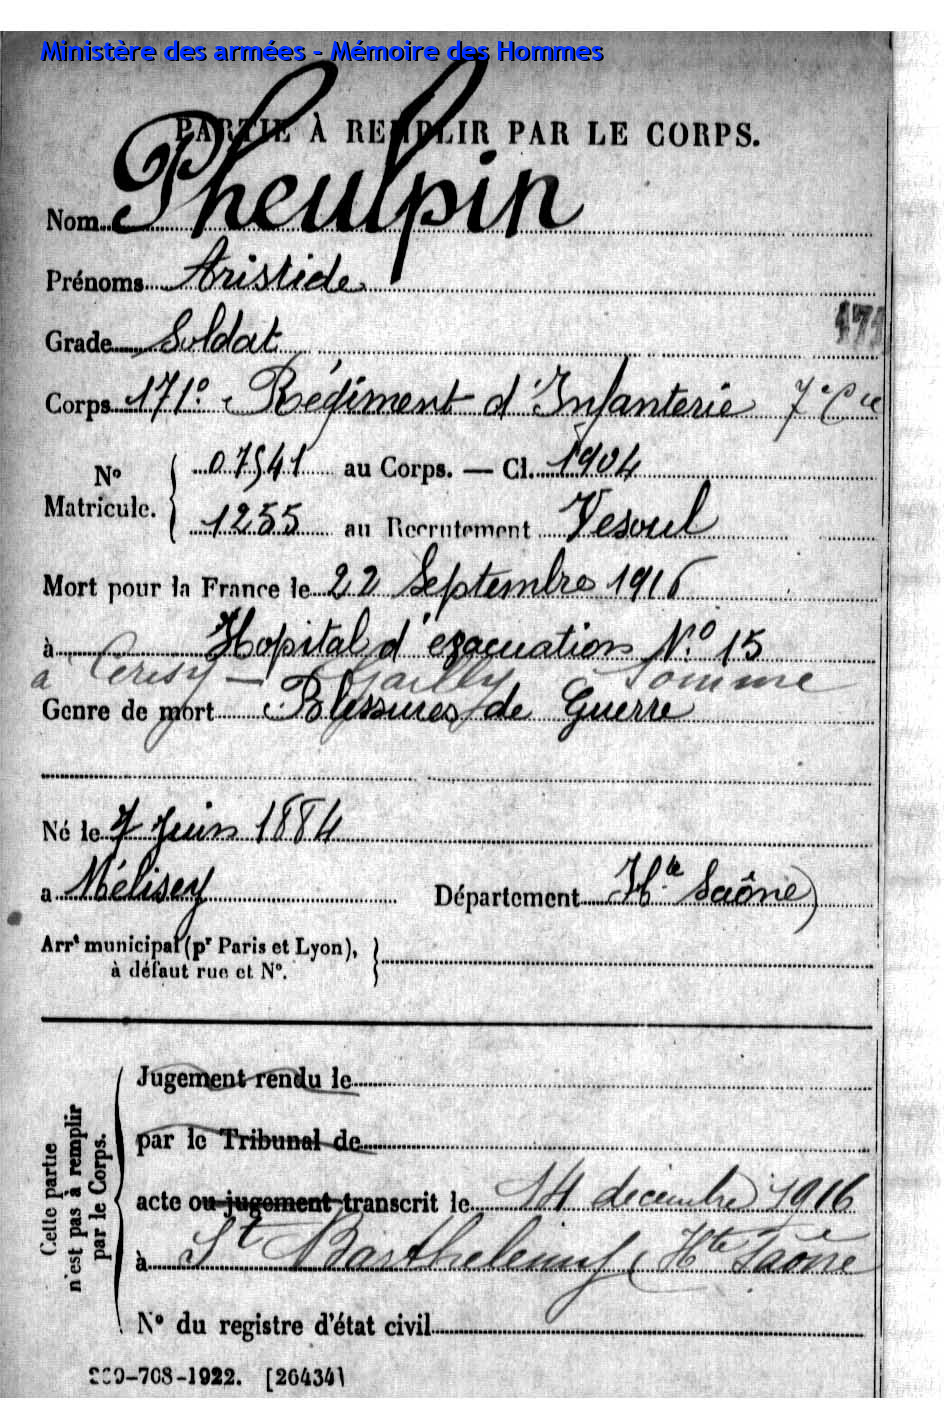 Ministère des armées - Mémoire des Hommes
PARTIE À REMPLIR PAR LE CORPS.
Nom Pheulpin
Prénoms Aristide
Grade Soldat
171
Corps 171e Régiment d'Infanterie 7e Cie
No Matricule. { 07541 au Corps. — Cl. 1904
1255 au Recrutement Vesoul
Mort pour la France le 22 Septembre 1916
à Hopital d'évacuation No 15
à Cerisy — Gailly Somme
Genre de mort Blessures de Guerre
Né le 7 Juin 1884
à Mélisey Département Hte Saône
Arrt municipal (pr Paris et Lyon),
à défaut rue et No.
Cette partie n'est pas à remplir par le Corps.
Jugement rendu le
par le Tribunal de
acte ou jugement transcrit le 14 décembre 1916
à St Barthelemy (Hte Saône
No du registre d'état civil
-708-1922. [26434]